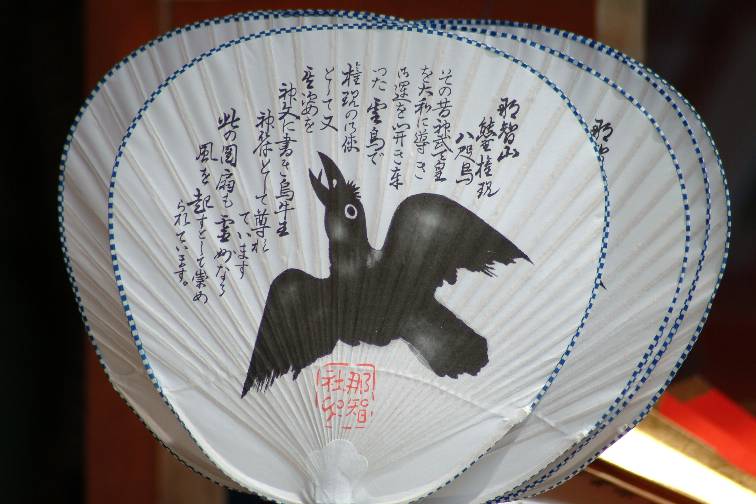 那智山
熊野権現
八咫烏
その昔神武天皇
を大和に導き
御運を開き奉
った霊鳥で
権現の御使
として又
其姿を
神文に書き烏牛王
神符として尊ばれ
ています
此の団扇も霊妙なる
風を起すとして崇め
られています。
那智
社
那智